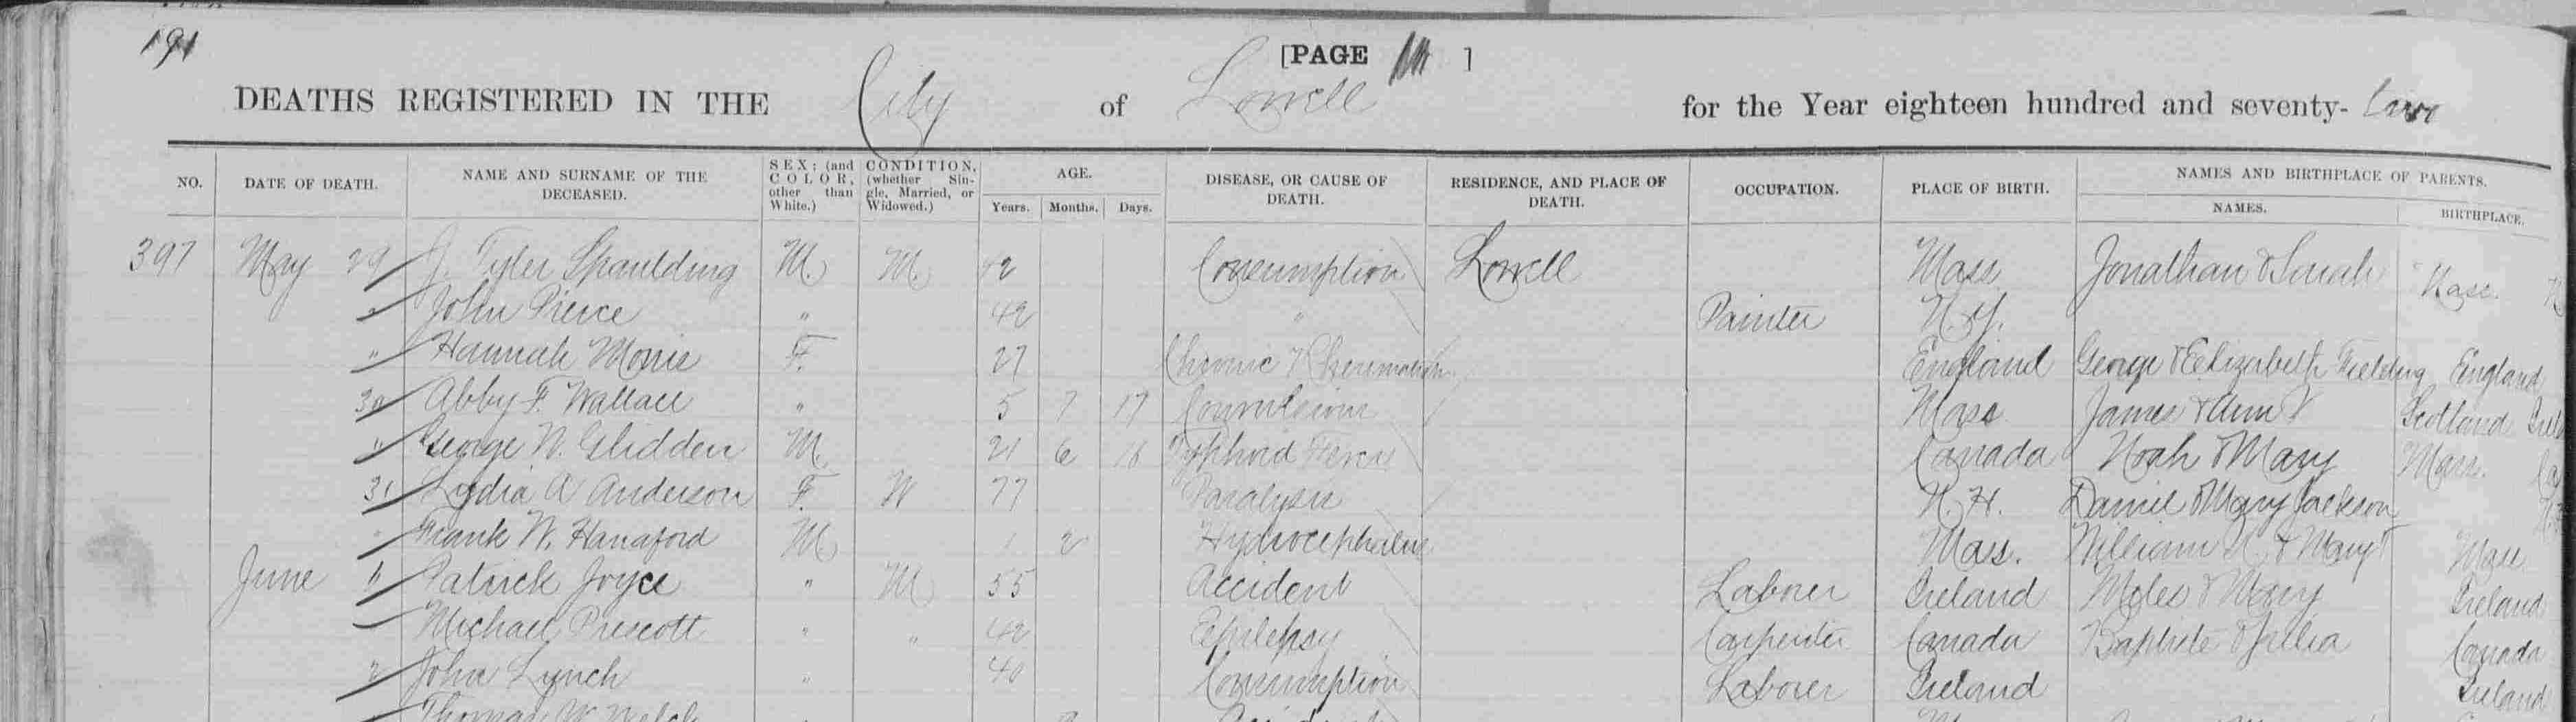 191
[PAGE ]
DEATHS REGISTERED IN THE City of Lowell for the Year eighteen hundred and seventy-two
NO. DATE OF DEATH. NAME AND SURNAME OF THE DECEASED. SEX; (and COLOR, other than White.) CONDITION, (whether Single, Married, or Widowed.) AGE. Years. Months. Days. DISEASE, OR CAUSE OF DEATH. RESIDENCE, AND PLACE OF DEATH. OCCUPATION. PLACE OF BIRTH. NAMES AND BIRTHPLACE OF PARENTS. NAMES. BIRTHPLACE.
397 May 29 J. Tyler Spaulding M. M. 42 Consumption Lowell Mass Jonathan & Sarah Mass.
" John Pierce " 42 " Painter N.Y.
" Hannah Morris F. 27 Chronic Rheumatism England George & Elizabeth Fielding England
30 Abby F. Wallace " 5 7 17 Convulsions Mass James & Ann Scotland
" George W. Glidden M 21 6 18 Typhoid Fever Canada Noah & Mary Mass.
31 Lydia A Anderson F. W 77 Paralysis N.H. Daniel & Mary Jackson
" Frank W. Hanaford M 1 2 Hydrocephalus Mass. William & Mary Mass
June 1 Patrick Joyce " M 55 Accident Laborer Ireland Miles & Mary Ireland
Michael Prescott " " 42 Epilepsy Carpenter Canada Baptiste & Canada
2 John Lynch " 40 Consumption Laborer Ireland Ireland
Thomas W.